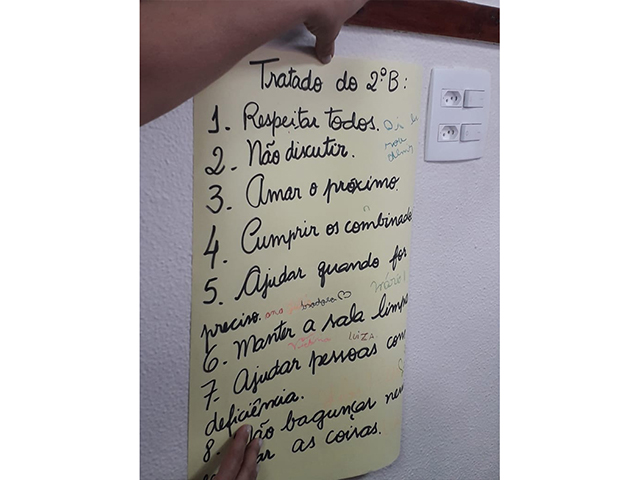 Tratado do 2ºB:
1. Respeitar todos.
2. Não discutir.
3. Amar o próximo
4. Cumprir os combinado
5. Ajudar quando for
preciso.
6. Manter a sala limpa
LUIZA
7. Ajudar pessoas com
deficiência.
8. Não bagunçar nem
as coisas.